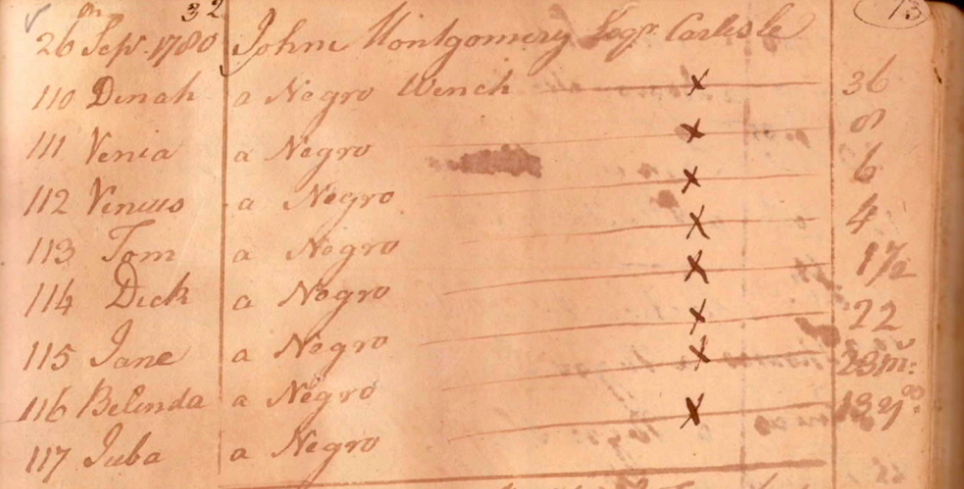 32 13
26 Sepr. 1780 John Montgomery Esqr. Carlisle
110 Dinah a Negro Wench x 36
111 Venia a Negro x 8
112 Venus a Negro x 6
113 Tom a Negro x 4
114 Dick a Negro x 1½
115 Jane a Negro x 22
116 Belinda a Negro x 23 m:
117 Juba a Negro x 13 yrs.